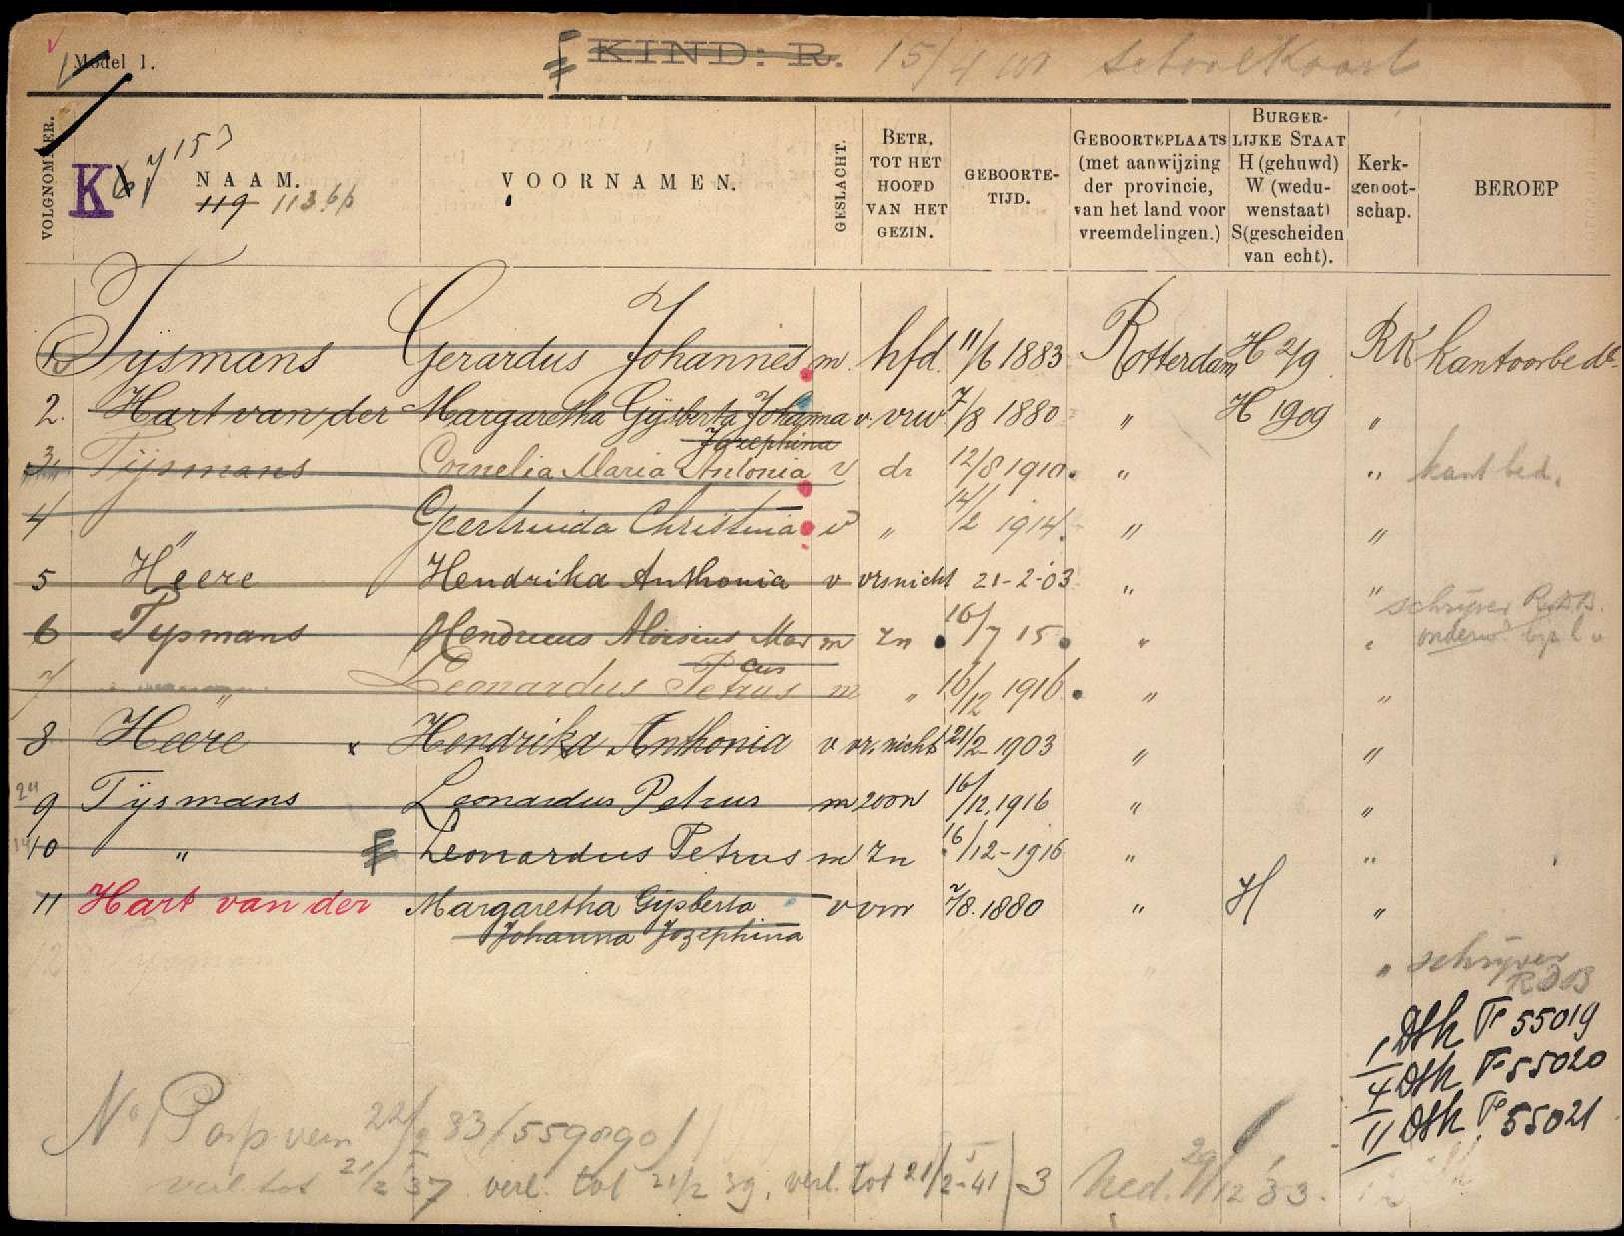 Model 1.
KIND: R. 15/4 schoolkaart
VOLGNOMMER.
K 153
NAAM.
119 113
VOORNAMEN.
GESLACHT.
BETR. TOT HET HOOFD VAN HET GEZIN.
GEBOORTE-TIJD.
GEBOORTEPLAATS (met aanwijzing der provincie, van het land voor vreemdelingen.)
BURGER-LIJKE STAAT H (gehuwd) W (wedu-wenstaat) S (gescheiden van echt).
Kerk-genoot-schap.
BEROEP
1 Tijsmans Gerardus Johannes m. hfd. 11/6 1883 Rotterdam H 2/9 RK kantoorbede
2. Hart van der Margaretha Gijsberta Johanna v. vrw 7/8 1880 " H 1909 "
Jozephina
3 Tijsmans Cornelia Maria Antonia v dr 12/8 1910. " " kant bed.
4 " Geertruida Christina v " 14/2 1914. " "
5 Heere Hendrika Anthonia v vrsnicht 21-2-03 " "
schrijver
6 Tijsmans Hendricus Aloisius Mar m zn 16/7 15 " " onderw
cus
7 " Leonardus Petrus m " 16/12 1916. " "
8 Heere x Hendrika Anthonia v vr.nicht 21/2 1903 " "
9 Tijsmans Leonardus Petrus m zoon 16/12.1916 " "
10 " Leonardus Petrus m zn 16/12-1916 " "
11 Hart van der Margaretha Gijsberta v vrw 7/8.1880 " H "
Johanna Jozephina
" schrijver
RDB
1 Dsk T 55019
4 Dsk T 55020
11 Dsk T 55021
No 1 Pasp vern 22/2 33 (559090)
verl tot 21/2 37 verl. tot 21/2 39. verl. tot 21/2-41 3 Ned. 29/12 33.